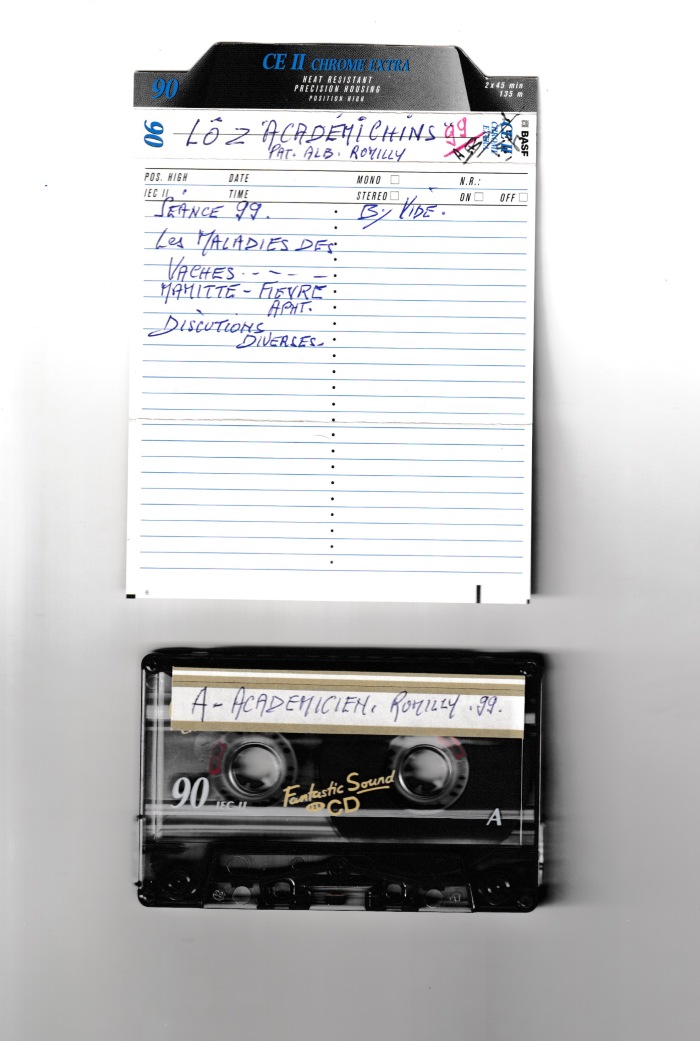 CE II CHROME EXTRA
90
HEAT RESISTANT
PRECISION HOUSING
POSITION HIGH
2 x 45 min
135 m
90
LÔZ ACADÉMICHINS 99
PAT. ALB. ROMILLY
BASF
POS. HIGH DATE MONO N.R.:
IEC II TIME STEREO ON OFF
SEANCE 99. B/ VIDE.
Les MALADIES DES
VACHES - - - -
MAMITTE - FIEVRE
APHT.
DISCUTIONS
DIVERSES.
A - ACADEMICIEN. ROMILLY. 99.
90 IEC II
Fantastic Sound
CD
A